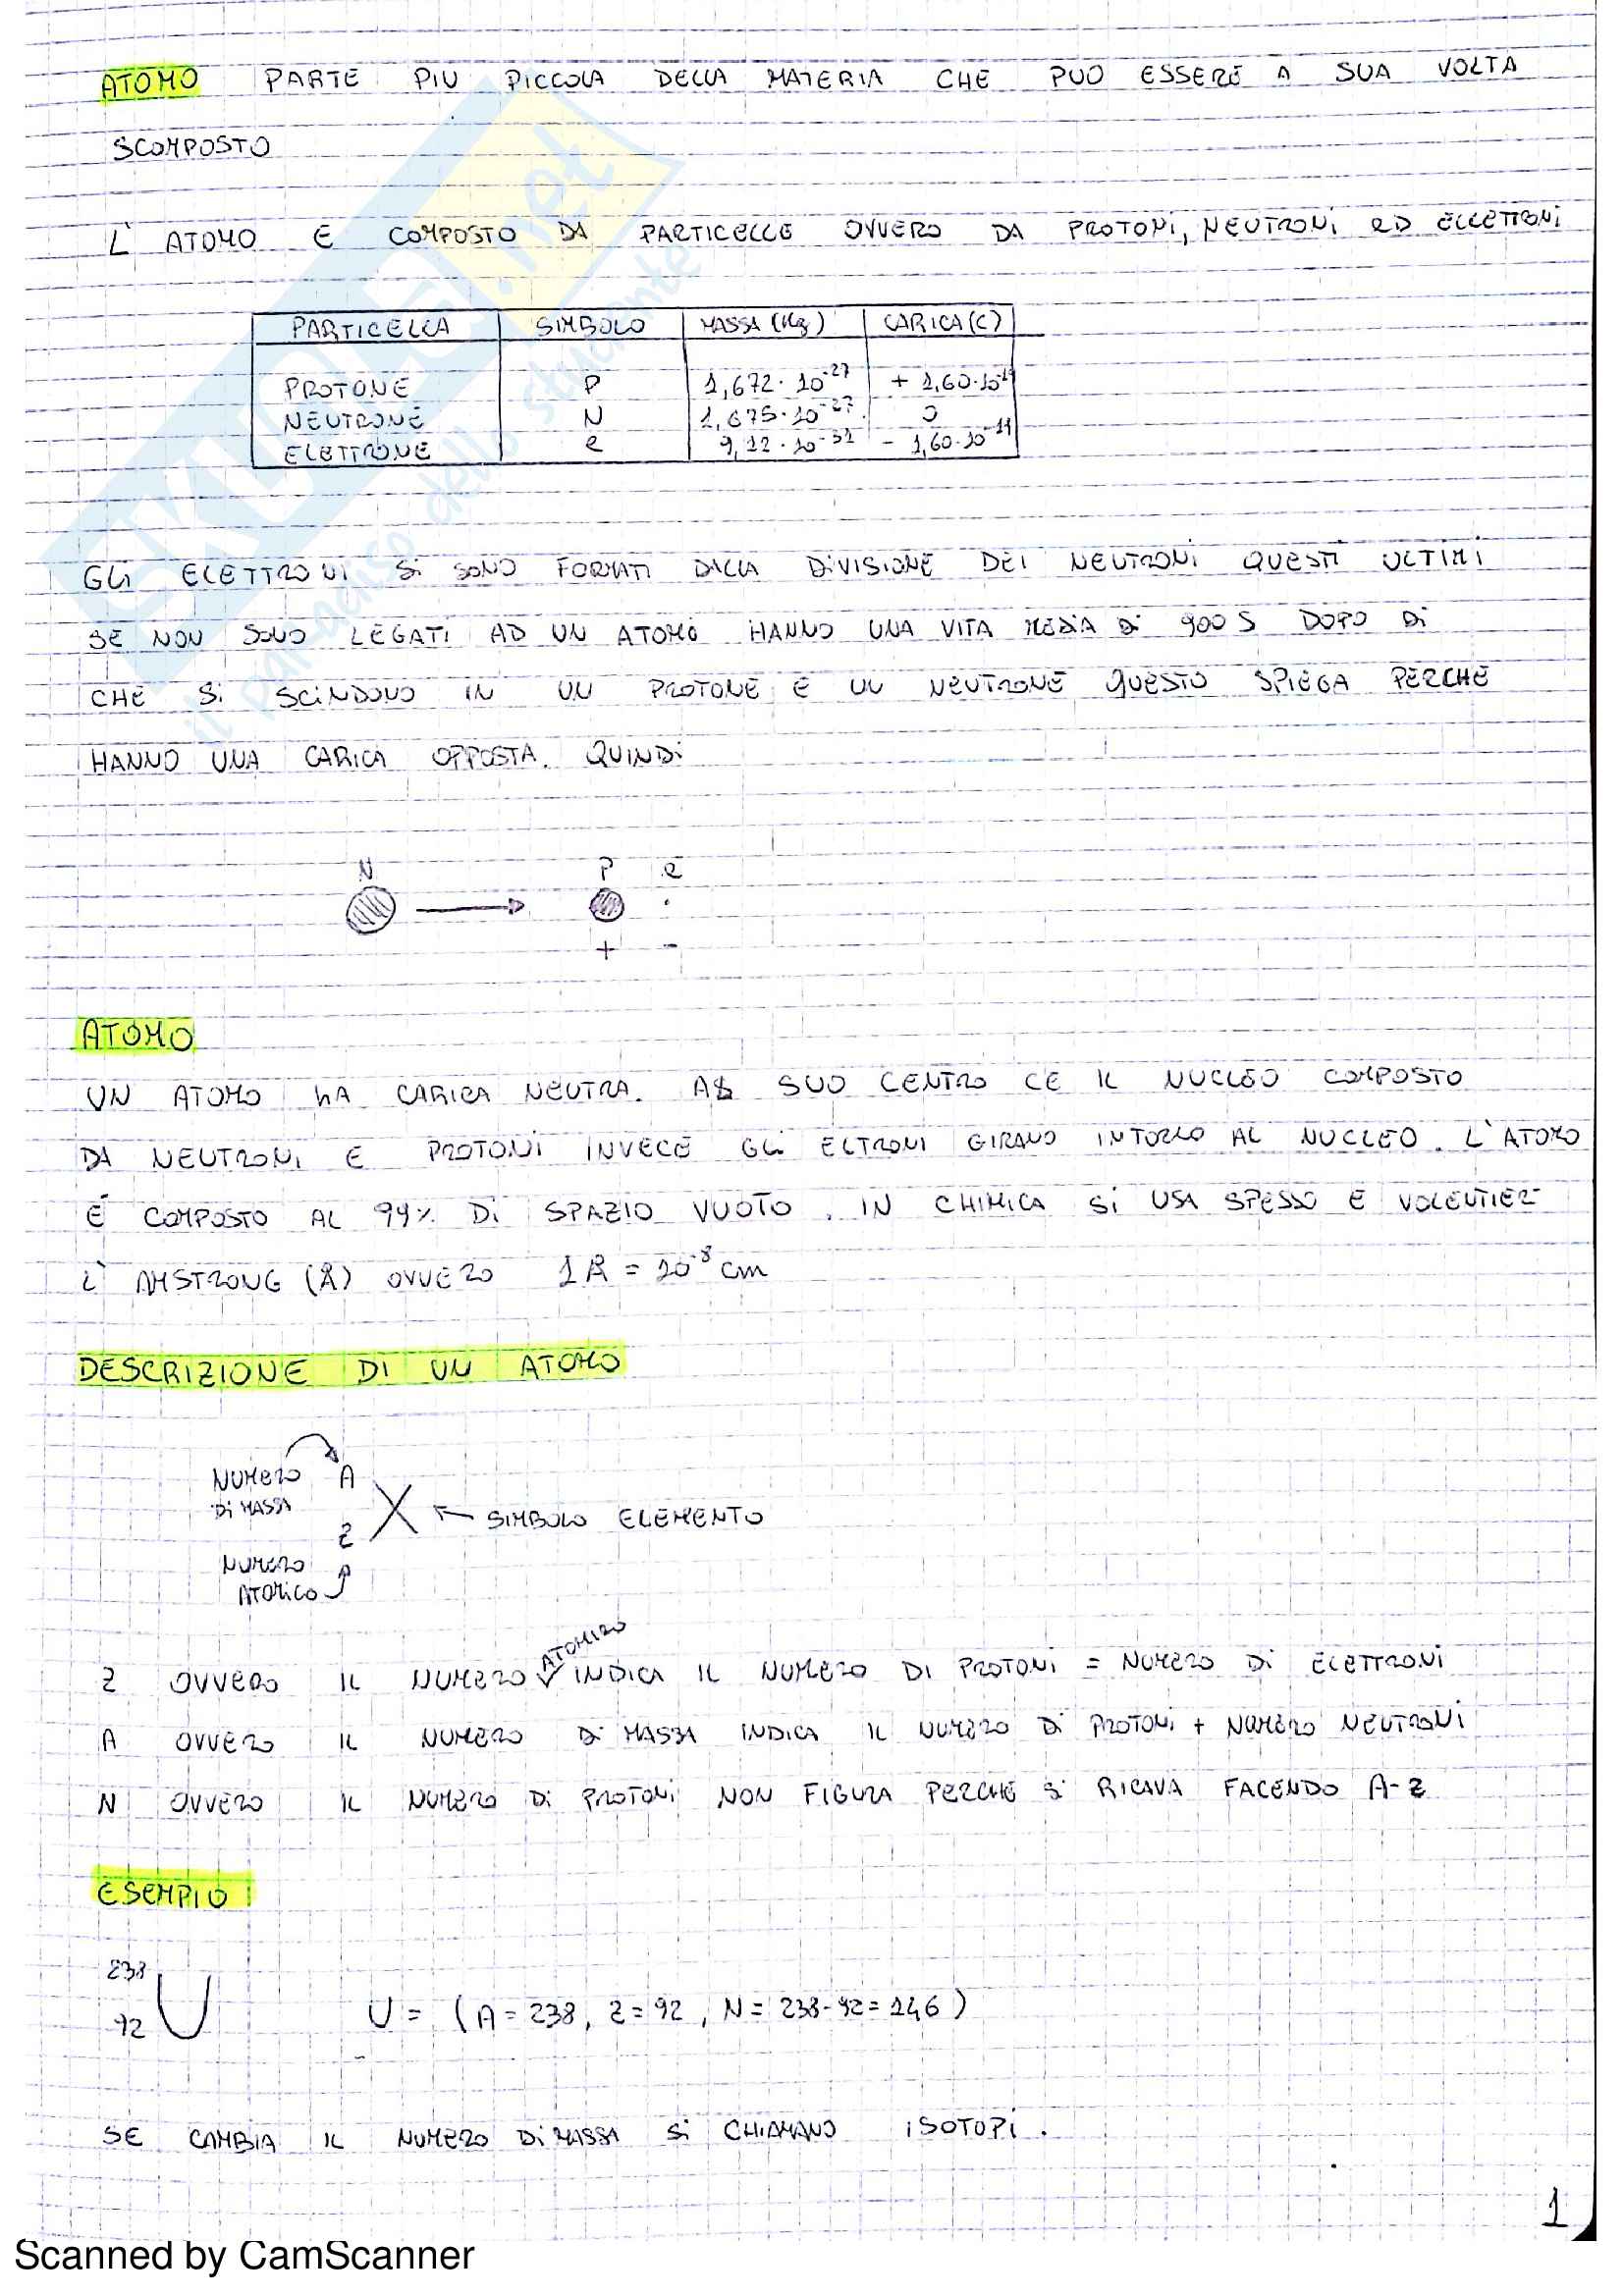 ATOMO PARTE PIU PICCOLA DELLA MATERIA CHE PUO ESSERE A SUA VOLTA
SCOMPOSTO
L' ATOMO E COMPOSTO DA PARTICELLE OVVERO DA PROTONI, NEUTRONI ED ELLETTRONI
PARTICELLA SIMBOLO MASSA (Kg) CARICA (C)
PROTONE P 1,672·10⁻²⁷ + 1,60·10⁻¹⁹
NEUTRONE N 1,675·10⁻²⁷ 0
ELETTRONE e 9,11·10⁻³¹ - 1,60·10⁻¹⁹
GLI ELETTRONI SI SONO FORMATI DALLA DIVISIONE DEI NEUTRONI QUESTI ULTIMI
SE NON SONO LEGATI AD UN ATOMO HANNO UNA VITA MEDIA DI 900 S DOPO DI
CHE SI SCINDONO IN UN PROTONE E UN NEUTRONE QUESTO SPIEGA PERCHE
HANNO UNA CARICA OPPOSTA. QUINDI
N P e
+ -
ATOMO
UN ATOMO HA CARICA NEUTRA. AL SUO CENTRO CE IL NUCLEO COMPOSTO
DA NEUTRONI E PROTONI INVECE GLI ELTRONI GIRANO INTORNO AL NUCLEO. L'ATOMO
É COMPOSTO AL 99% DI SPAZIO VUOTO. IN CHIMICA SI USA SPESSO E VOLENTIER
L' AMSTRONG (Å) OVVERO 1Å = 10⁻⁸ cm
DESCRIZIONE DI UN ATOMO
NUMERO A
DI MASSA
X SIMBOLO ELEMENTO
Z
NUMERO
ATOMICO
ATOMICO
Z OVVERO IL NUMERO INDICA IL NUMERO DI PROTONI = NUMERO DI ELETTRONI
A OVVERO IL NUMERO DI MASSA INDICA IL NUMERO DI PROTONI + NUMERO NEUTRONI
N OVVERO IL NUMERO DI PROTONI NON FIGURA PERCHE SI RICAVA FACENDO A-Z
ESEMPIO
238
U U = (A = 238, Z = 92, N = 238-92 = 146)
92
SE CAMBIA IL NUMERO DI MASSA SI CHIAMANO ISOTOPI.
1
Scanned by CamScanner
SKUOLA.net
il paradiso dello studente